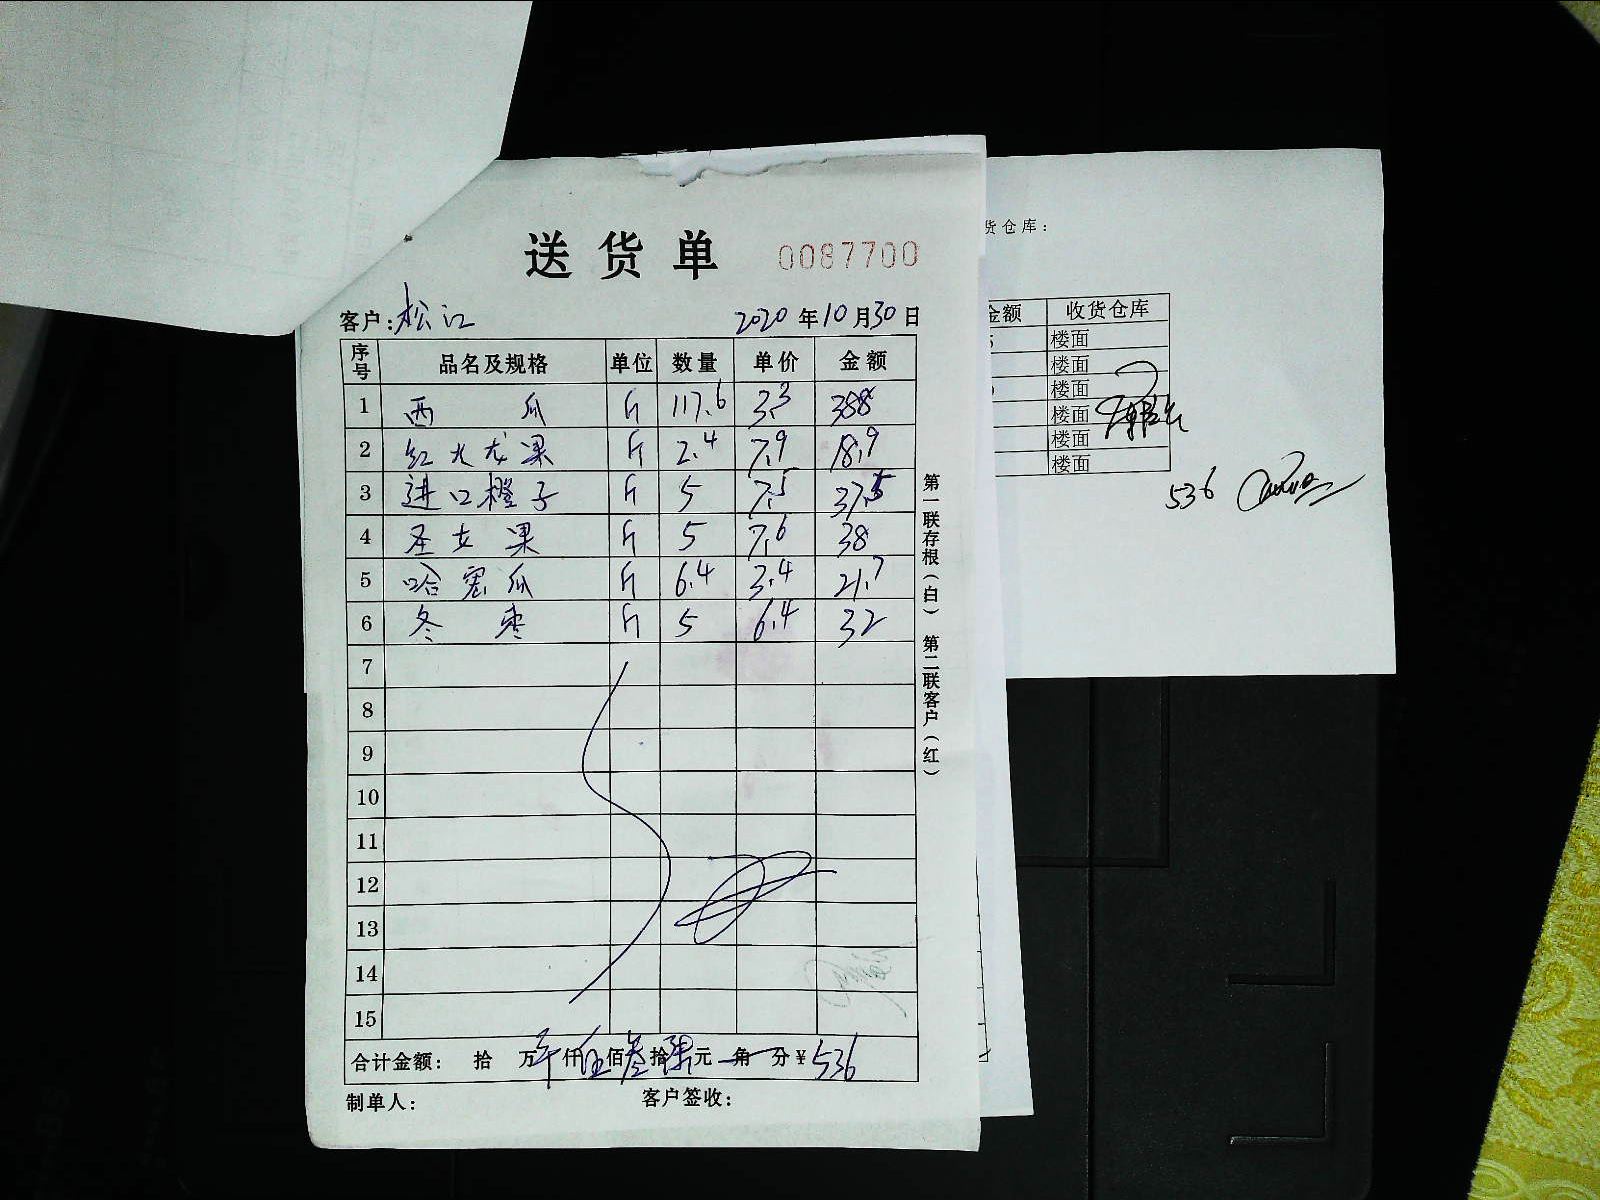 送货单 0087700
客户:松江 2020年10月30日
序号 品名及规格 单位 数量 单价 金额
1 西瓜 斤 117.6 3.3 388
2 红火龙果 斤 2.4 7.9 18.9
3 进口橙子 斤 5 7.5 37.5
4 圣女果 斤 5 7.6 38
5 哈密瓜 斤 6.4 3.4 21.7
6 冬枣 斤 5 6.4 32
7
8
9
10
11
12
13
14
15
合计金额: 拾 万 仟伍佰叁拾陆元 角 分¥536
制单人: 客户签收:
第一联存根(白) 第二联客户(红)
货仓库:
金额 收货仓库
楼面
楼面
楼面
楼面
楼面
楼面
536